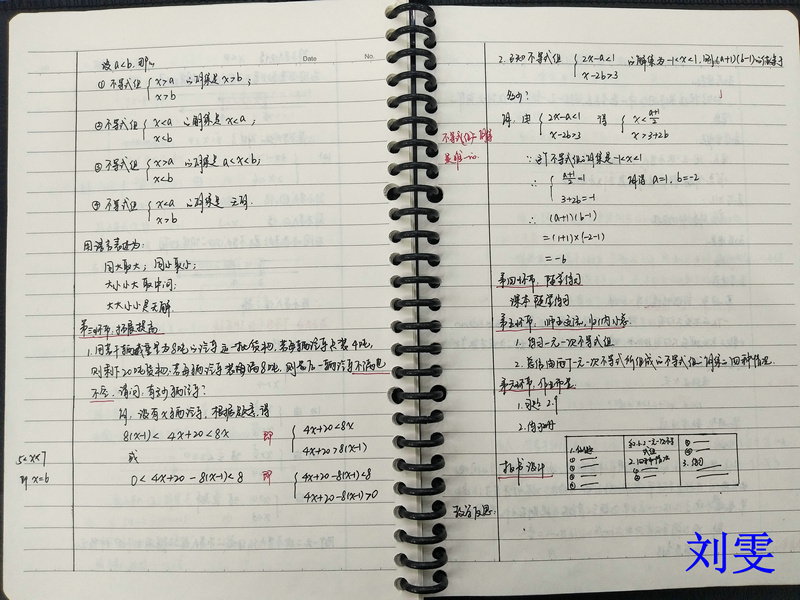 设a<b,那么
①不等式组 { x>a x>b 的解集是 x>b;
②不等式组 { x<a x<b 的解集是 x<a;
③不等式组 { x>a x<b 的解集是 a<x<b;
④不等式组 { x<a x>b 的解集是 无解.
用语言表述为:
同大取大;同小取小;
大小小大取中间;
大大小小是无解.
第三环节、拓展提高
1.用若干辆载重量为8吨的汽车运一批货物,若每辆汽车只装4吨,
则剩下20吨货物;若每辆汽车装满8吨,则最后一辆汽车不满也
不空.请问:有多少辆汽车?
解,设有x辆汽车,根据题意,得
8(x-1)< 4x+20<8x 即 { 4x+20<8x 4x+20>8(x-1)
或
0< 4x+20-8(x-1)<8 即 { 4x+20-8(x-1)<8 4x+20-8(x-1)>0
5<x<7
即 x=6
Date No.
2. 已知不等式组 { 2x-a<1 x-2b>3 的解集为-1<x<1,则(a+1)(b-1)的值等于
多少?
解,由 { 2x-a<1 x-2b>3 得 { x<a+1/2 x>3+2b
不等式组的解集
是唯一的
∵这个不等式组的解集是-1<x<1
∴ { a+1/2=1 3+2b=-1 解得 a=1, b=-2
∴ (a+1)(b-1)
=(1+1)×(-2-1)
=-6
第四环节、随堂练习
课本 随堂练习
第五环节、师生交流,归纳小结
1.复习一元一次不等式组
2.总结由两个一元一次不等式所组成的不等式组的解集的四种情况.
第六环节、作业布置
1.习题 2.9
板书设计
①
②
③
④
教学反思:
刘雯